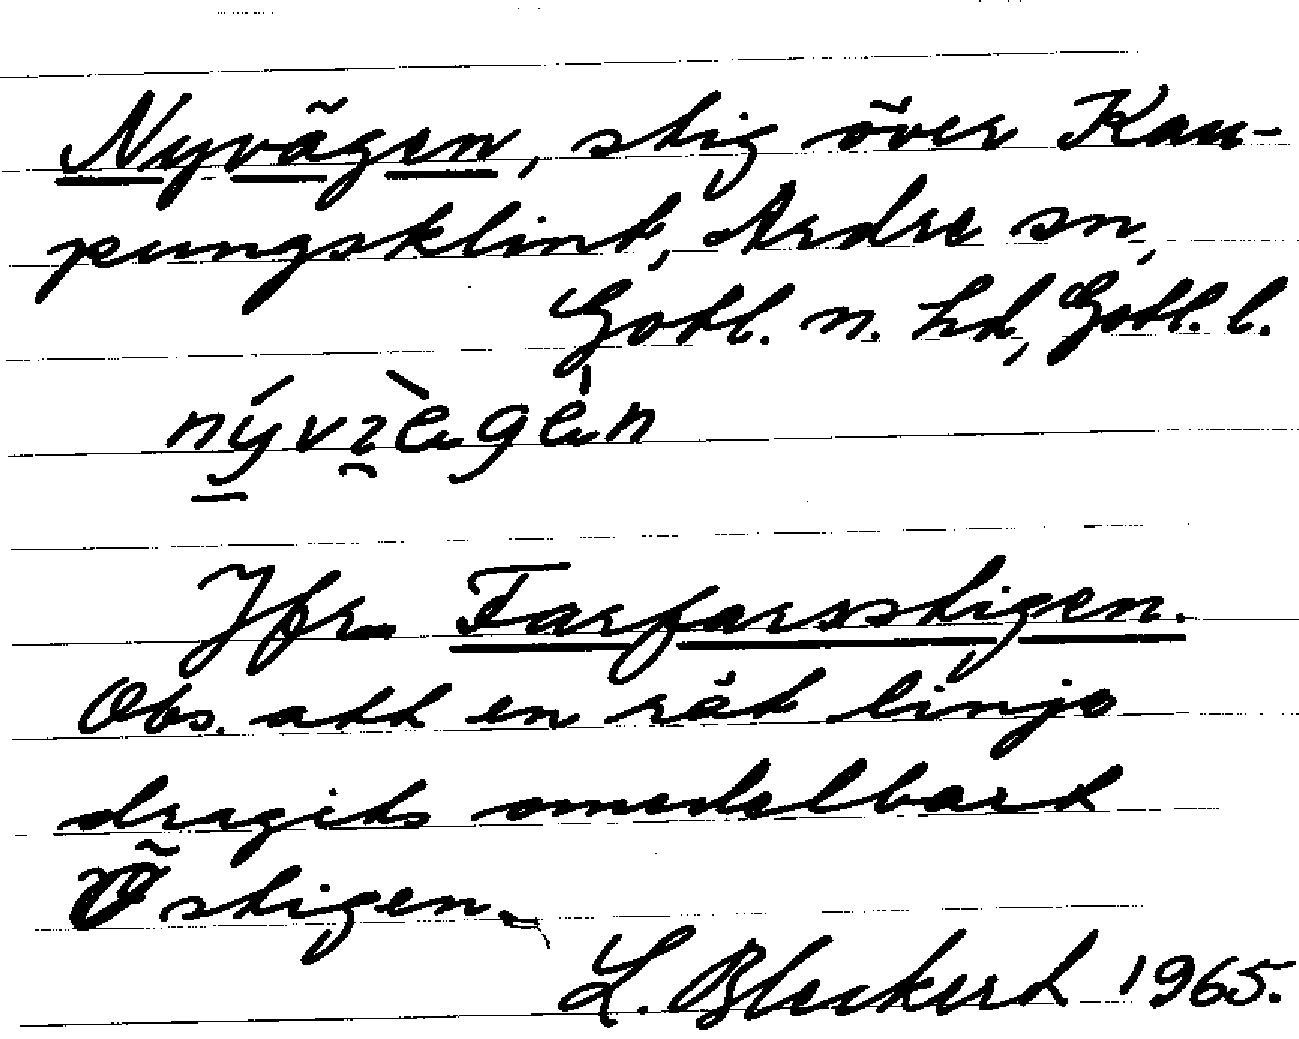 Nyvägen, stig över Kau-
pungsklint, Ardre sn,
Gotl. n. hd, Gotl. l.
Jfr Farfarsstigen.
Obs. att en rät linje
dragits omedelbart
Ö stigen.
L. Bleckert 1965.